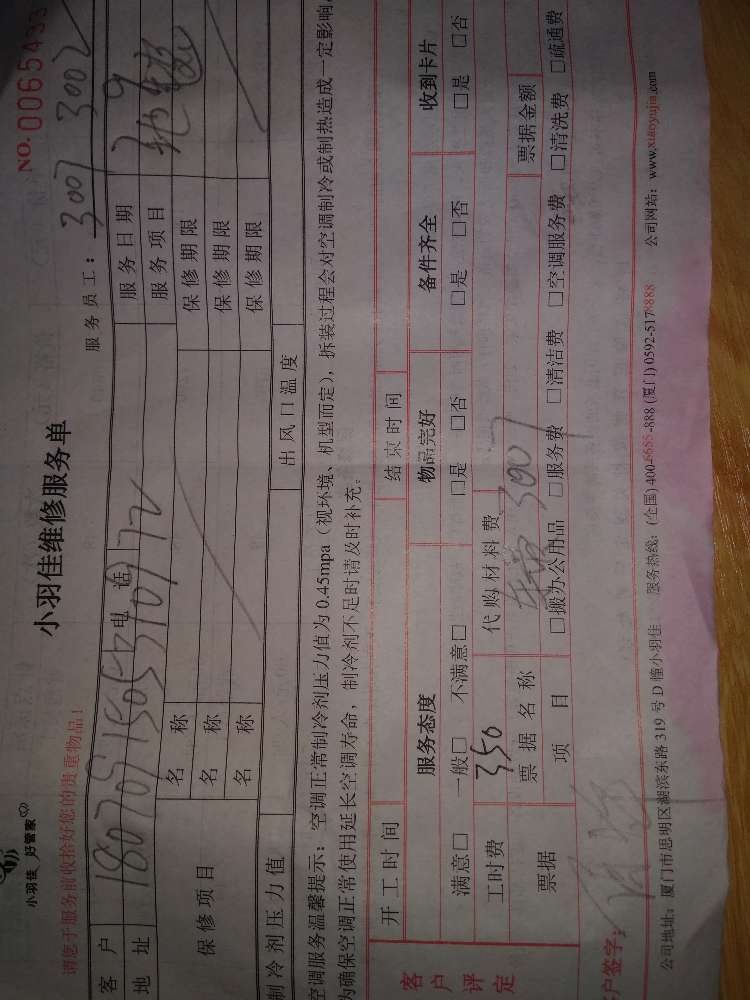 小羽佳 好管家
小羽佳维修服务单
NO.0065433
请您于服务前收拾好您的贵重物品！
服务员工：3007 3002
客户 电话 服务日期
地址 服务项目
保修项目 名称 保修期限
名称 保修期限
名称 保修期限
制冷剂压力值 出风口温度
空调服务温馨提示：空调正常制冷剂压力值为 0.45mpa（视环境、机型而定），拆装过程会对空调制冷或制热造成一定影响，
为确保空调正常使用延长空调寿命，制冷剂不足时请及时补充。
开工时间 结束时间
客户评定 服务态度 物品完好 备件齐全 收到卡片
满意□ 一般□ 不满意□ □是 □否 □是 □否 □是 □否
工时费 350 代购材料费
票据 票据名称 3007 票据金额
项目 □搬办公用品 □服务费 □清洁费 □空调服务费 □清洗费 □疏通费
客户签字：
公司地址：厦门市思明区湖滨东路 319 号 D 幢小羽佳 服务热线：(全国) 400-6655-888 (厦门) 0592-5178888 公司网站：www.xiaoyujia.com